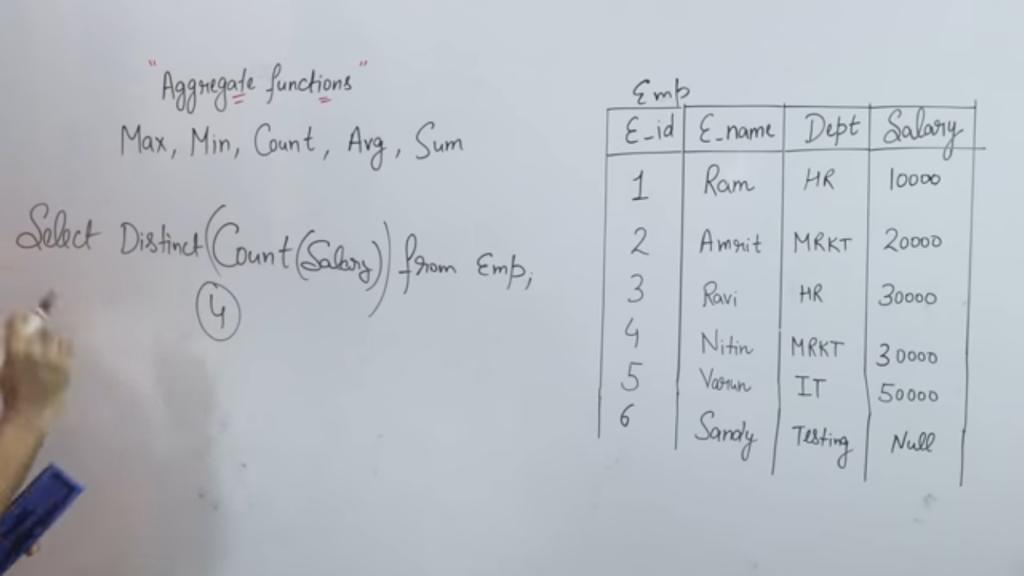 "Aggregate functions"
Max, Min, Count, Avg, Sum
Select Distinct(Count(Salary)) from Emp;
4
Emp
E_id E_name Dept Salary
1 Ram HR 10000
2 Amrit MRKT 20000
3 Ravi HR 30000
4 Nitin MRKT 30000
5 Varun IT 50000
6 Sandy Testing Null